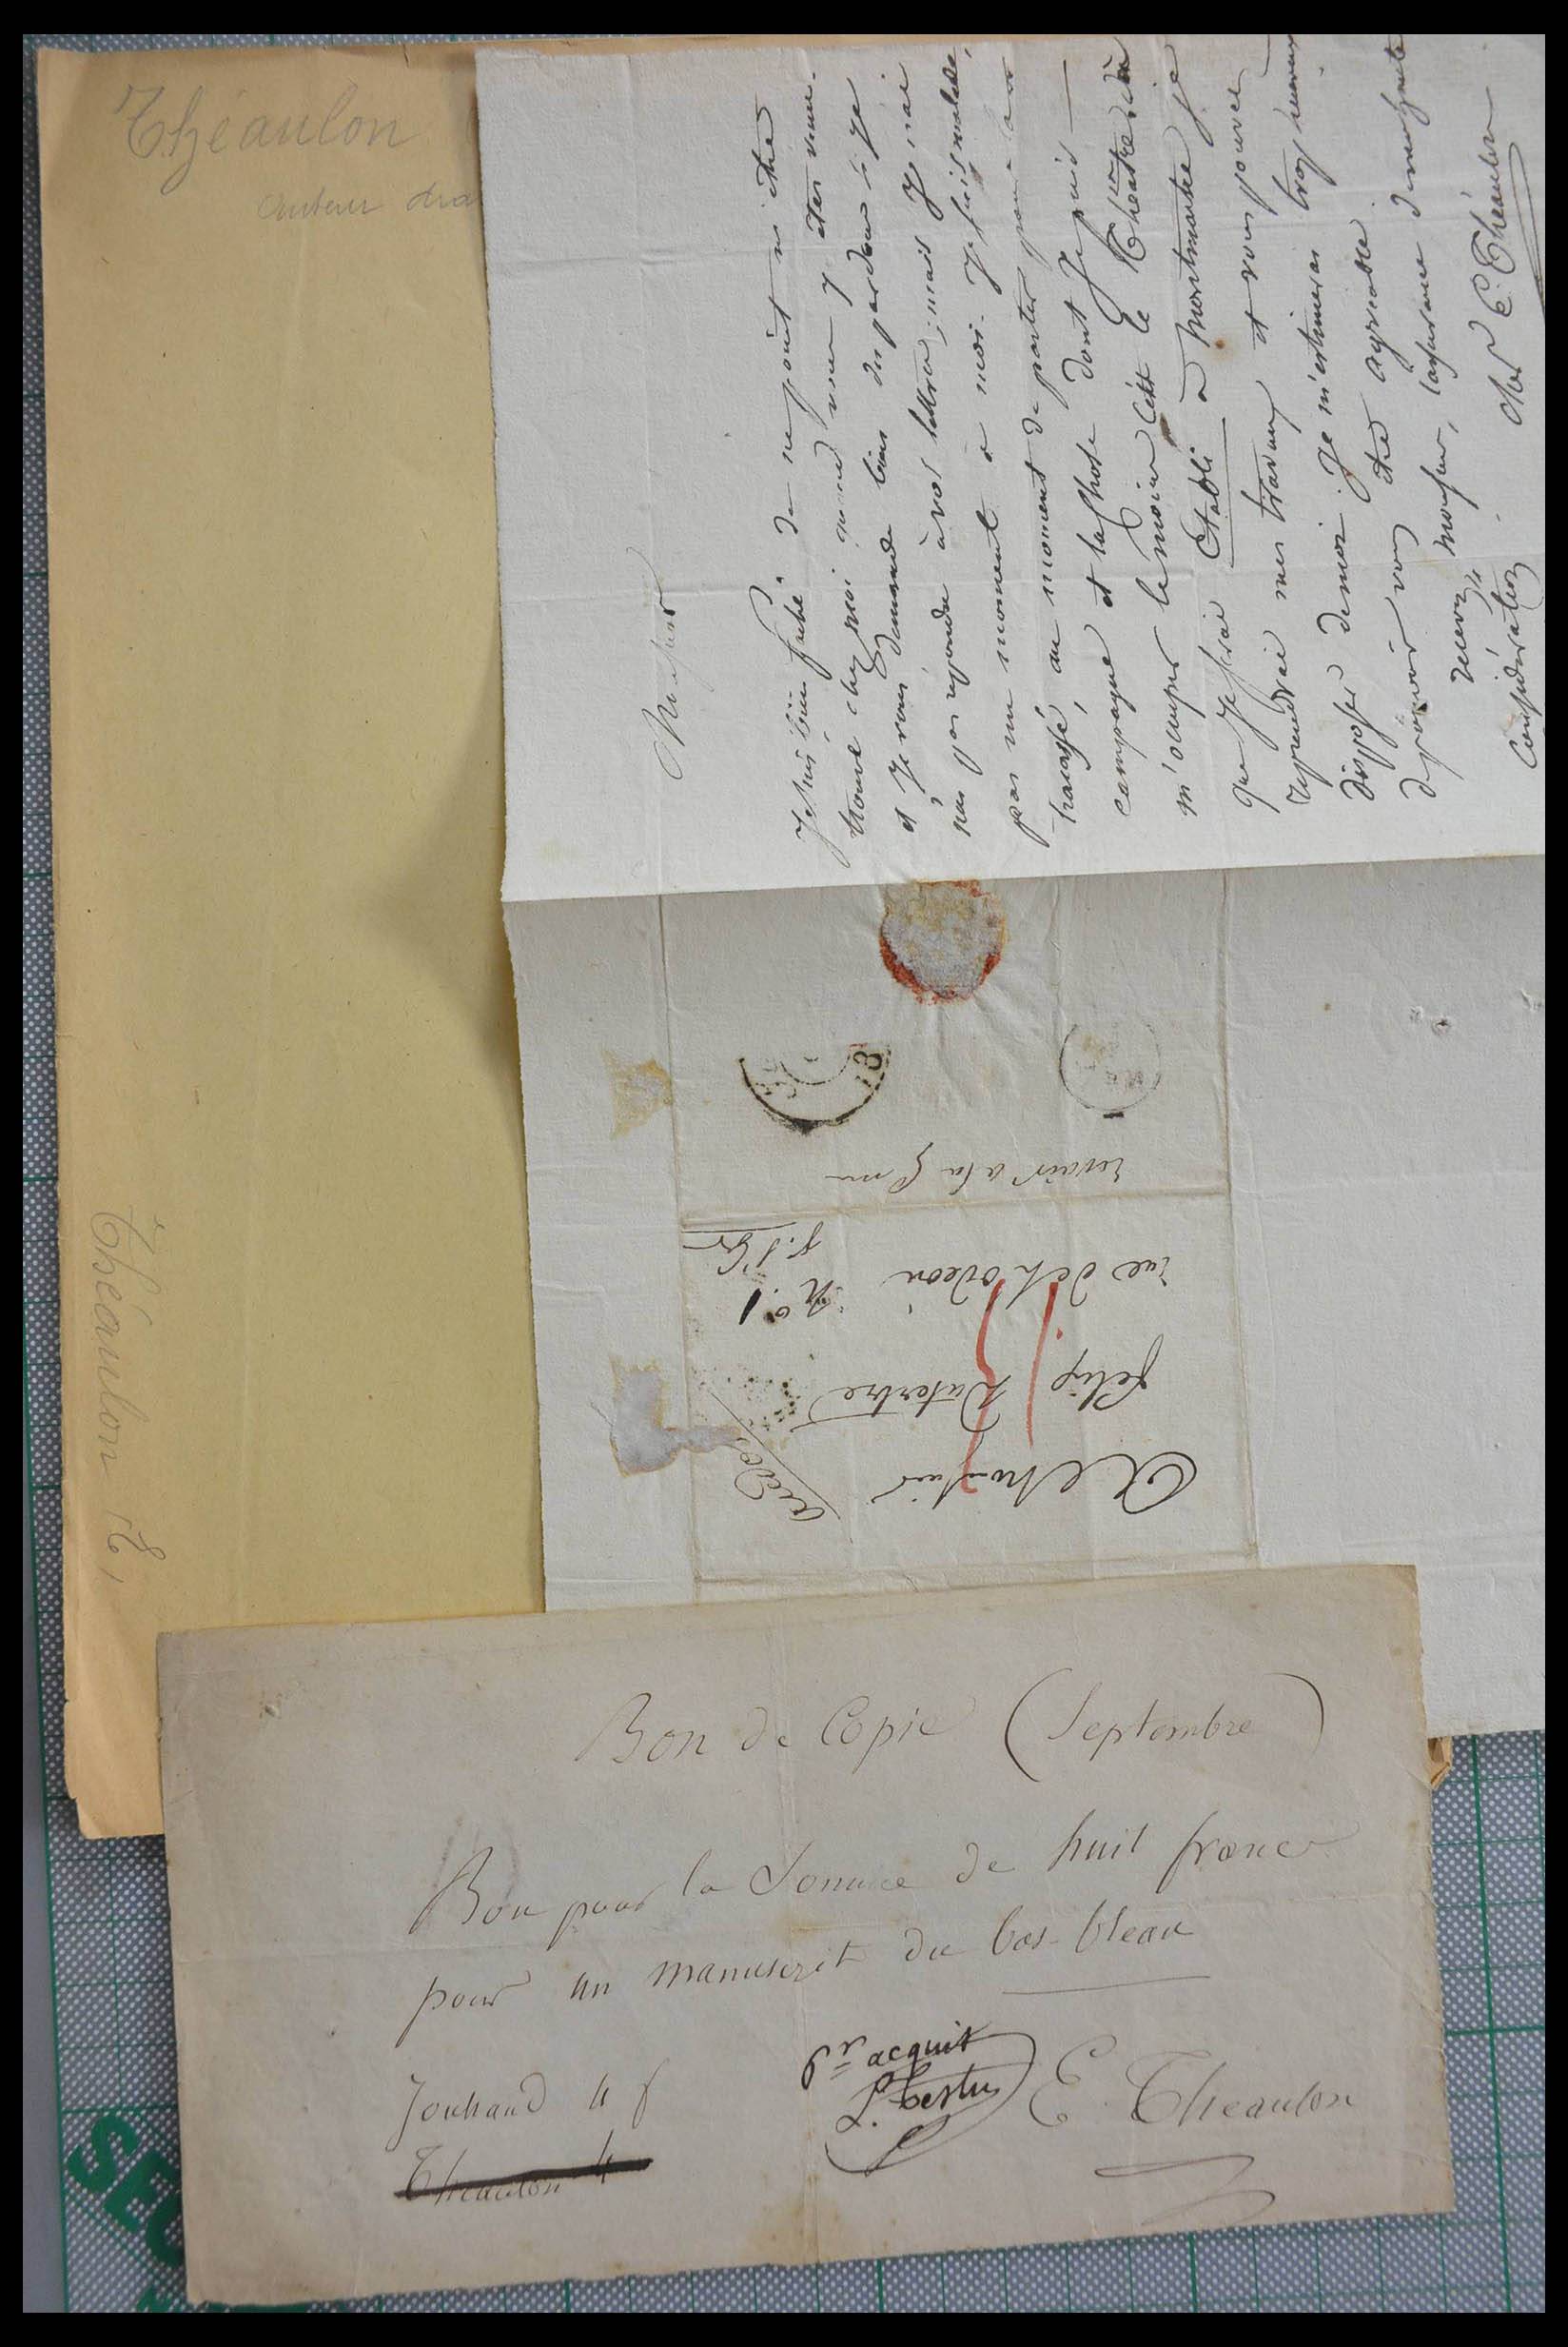 Théaulon
auteur dra
Théaulon E,
Monsieur
Je suis bien faché de ne point m'être
trouvé chez moi quand vous y êtes venu.
et Je vous demande bien des pardons si je
n'ai pas répondu à vos lettres; mais Je n'ai
pas un moment à moi. Je suis malade,
tracassé, au moment de partir pour la
campagne et la chose dont Je puis
m'occuper le moins C'est le Théâtre. dès
que Je serai Etabli à Montmartre je
reprendrai mes travaux et vous pouvez
disposer de moi. Je m'estimerai trop heureux
de pouvoir vous être agréable.
recevez, Monsieur, l'assurance de ma haute
Considération
E. Théaulon
13
A Monsieur
felix Dutertre
rue de l'odéon
N° 1
Bon de Copie (Septembre)
Bon pour la Somme de huit francs
pour un manuscrit du bas-bleau
Jouhaud 4 f
Theaulon 4
Pr acquit
L. Testu
E Theaulon
SEC